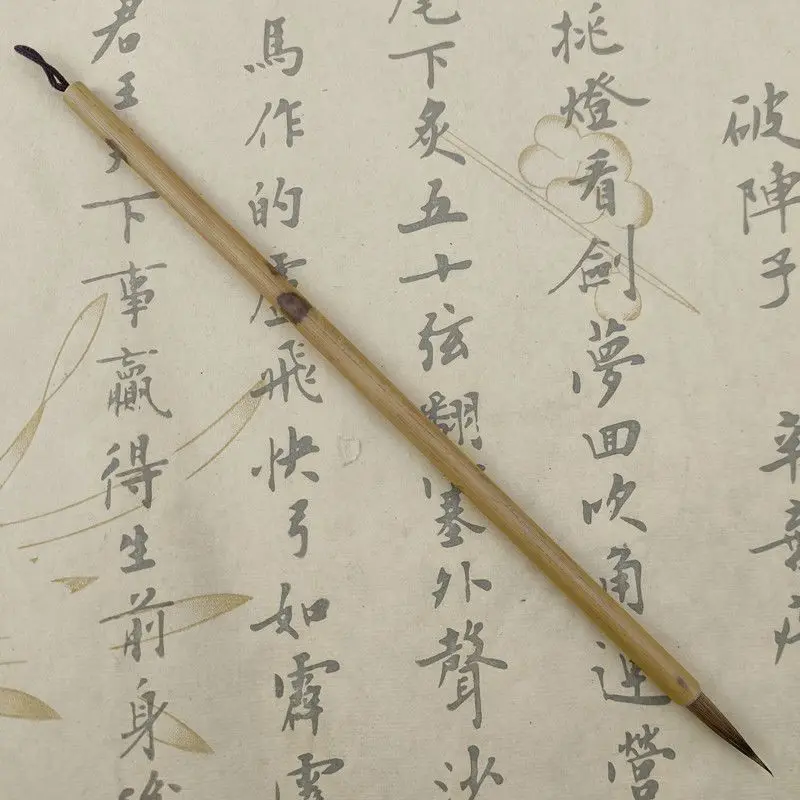 破陣子 辛棄疾
挑燈看劍夢回吹角連營
尾下炙五十弦翻塞外聲沙
馬作的盧飛快弓如霹靂
君王天下事贏得生前身後